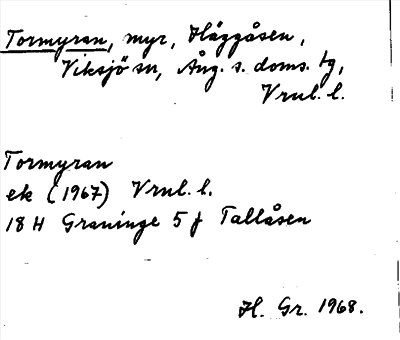 Tormyran, myr, Häggåsen,
Viksjö sn, Ång. s. doms. tg,
Vrnl. l.
Tormyran
ek (1967) Vrnl. l.
18 H Graninge 5 f Tallåsen
H. Gr. 1968.